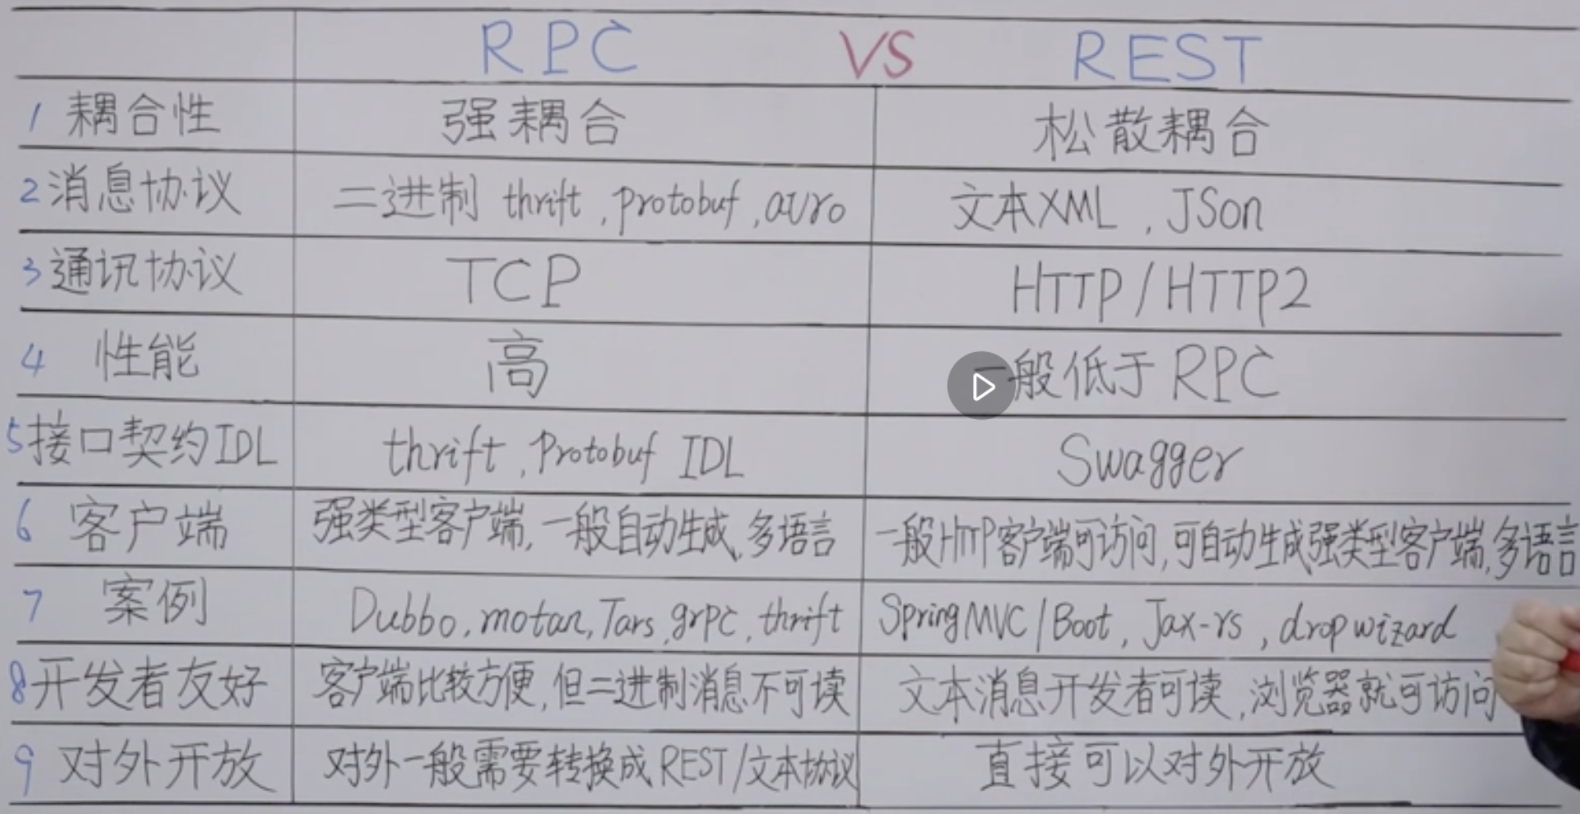 RPC VS REST
1 耦合性 强耦合 松散耦合
2 消息协议 二进制 thrift,protobuf,avro 文本XML,JSon
3 通讯协议 TCP HTTP/HTTP2
4 性能 高 一般低于RPC
5 接口契约IDL thrift,Protobuf IDL Swagger
6 客户端 强类型客户端,一般自动生成,多语言 一般HTTP客户端可访问,可自动生成强类型客户端,多语言
7 案例 Dubbo,motan,Tars,grpc,thrift SpringMVC/Boot,Jax-rs,dropwizard
8 开发者友好 客户端比较方便,但二进制消息不可读 文本消息开发者可读,浏览器就可访问
9 对外开放 对外一般需要转换成REST/文本协议 直接可以对外开放